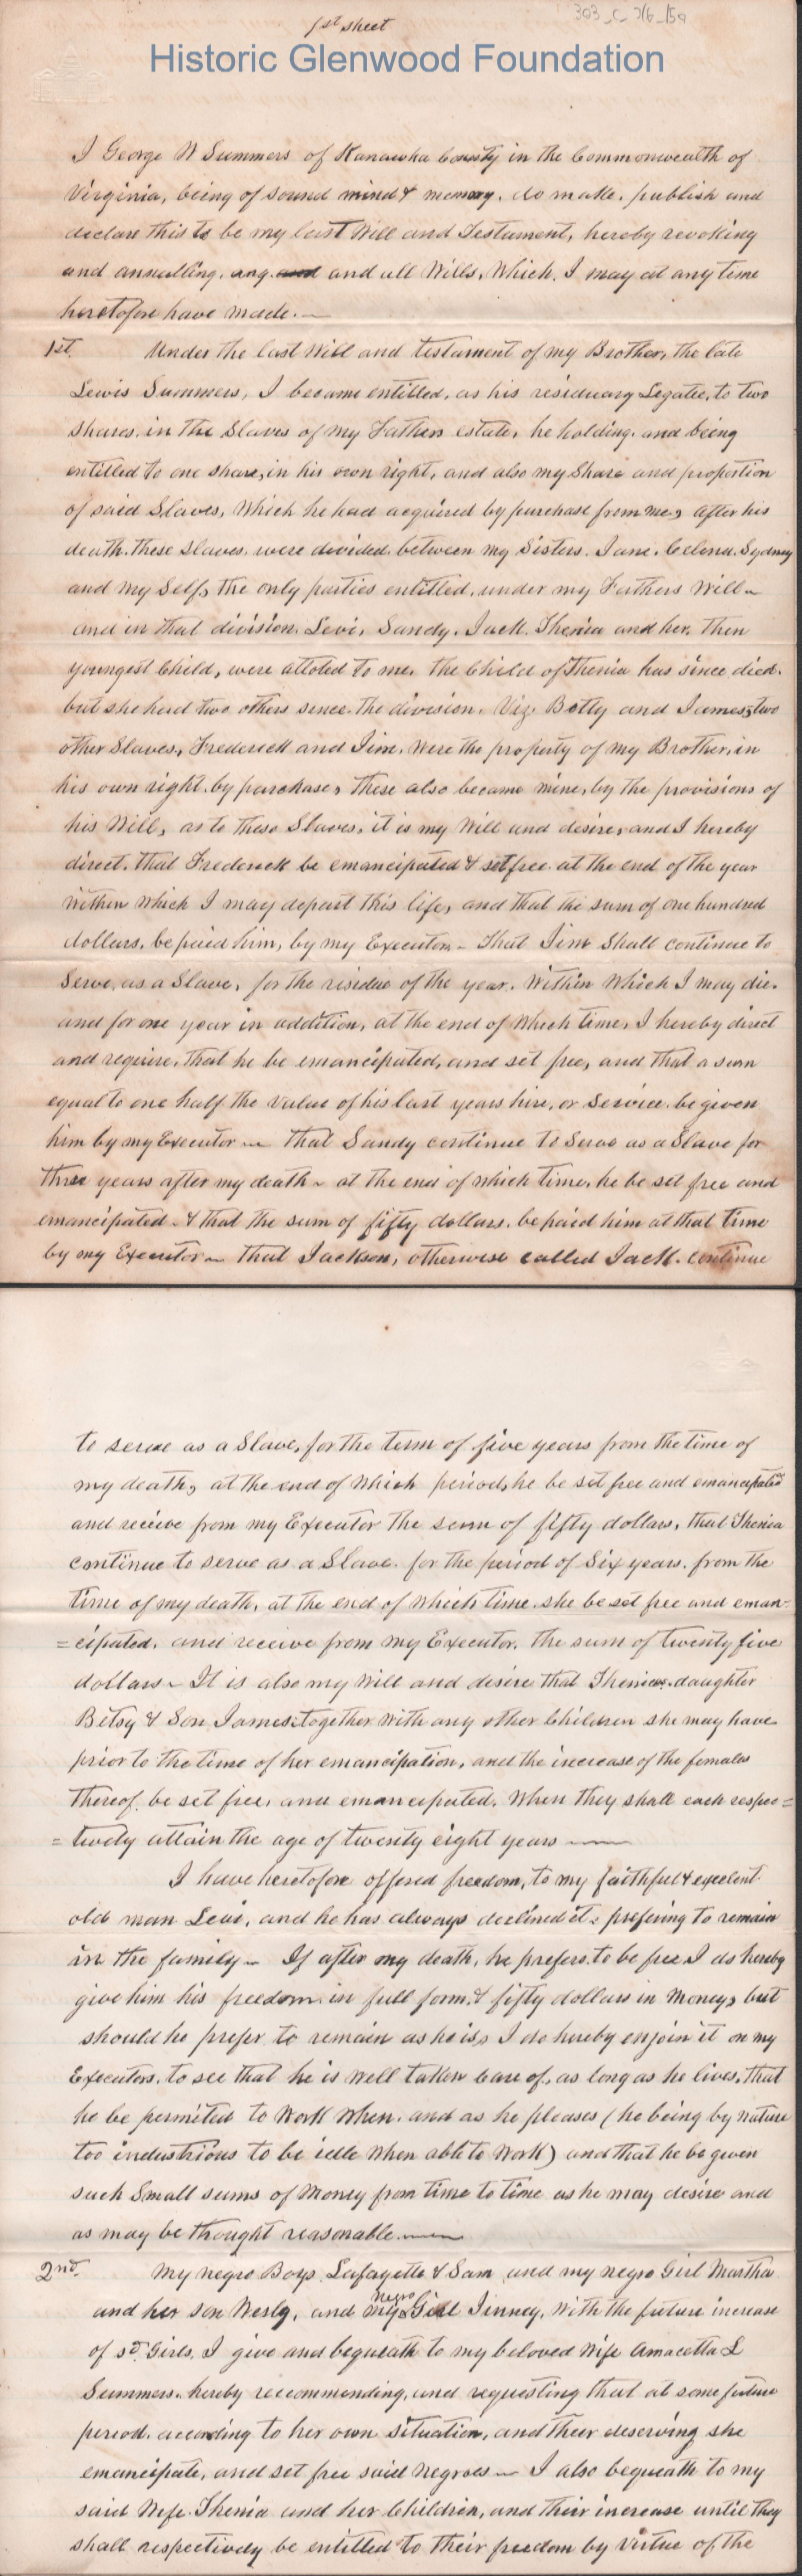 1st sheet
303_C_7/6_/50
Historic Glenwood Foundation
I George W Summers of Kanawha County in the Commonwealth of
Virginia, being of sound mind & memory, do make, publish and
declare this to be my last Will and Testament, hereby revoking
and annulling, any and all Wills, Which, I may at any time
heretofore have made.—
1st. Under the last Will and testament of my Brother, the late
Lewis Summers, I became entitled, as his residuary Legatee, to two
shares, in the Slaves of my Fathers estate, he holding, and being
entitled to one share, in his own right, and also my Share and proportion
of said Slaves, Which he had acquired by purchase from me, after his
death, these slaves were divided between my Sisters, Jane, Celena, Sydney
and my Self, the only parties entitled, under my Fathers Will—
and in that division, Levi, Sandy, Jack, Thenia and her, then
youngest Child, were alloted to me, the Child of Thenia has since died,
but she had two others since the division, Viz, Betty and James, two
other Slaves, Frederick and Jim, were the property of my Brother, in
his own right, by purchase, these also became mine, by the provisions of
his Will, as to these Slaves, it is my Will and desire, and I hereby
direct, that Frederick be emancipated & set free at the end of the year
within which I may depart this life, and that the sum of one hundred
dollars, be paid him, by my Executor — That Jim Shall continue to
Serve, as a Slave, for the residue of the year, Within Which I may die,
and for one year in addition, at the end of Which time, I hereby direct
and require, that he be emancipated, and set free, and that a sum
equal to one half the value of his last years hire, or Service be given
him by my Executor — that Sandy continue to Serve as a Slave for
three years after my death — at the end of which time, he be set free and
emancipated & that the sum of fifty dollars, be paid him at that time
by my Executor — that Jackson, otherwise called Jack, continue
to serve as a Slave, for the term of five years from the time of
my death, at the end of Which period, he be set free and emancipated
and receive from my Executor the sum of fifty dollars, that Thenia
continue to serve as a Slave for the period of Six years, from the
time of my death, at the end of which time she be set free and eman-
=cipated, and receive from my Executor, the sum of twenty five
dollars — It is also my Will and desire that Thenias daughter
Betsy & Son James together With any other Children she may have
prior to the time of her emancipation, and the increase of the females
thereof, be set free, and emancipated, When they shall each respec=
=tively attain the age of twenty eight years ——
I have heretofore offered freedom, to my faithful & excelent
old man Levi, and he has always declined it, prefering to remain
in the family — If after my death, he prefers to be free I do hereby
give him his freedom in full form, & fifty dollars in Money, but
should he prefer to remain as he is, I do hereby enjoin it on my
Executors, to see that he is well taken Care of, as long as he lives, that
he be permited to Work When, and as he pleases (he being by nature
too industrious to be idle When able to Work) and that he be given
such Small sums of Money from time to time as he may desire and
as may be thought reasonable ——
2nd. My negro Boys Lafayette & Sam and my negro Girl Martha
and her son Wesly, and my negro Girl Jinney, With the future increase
of sd. Girls, I give and bequeath to my beloved Wife Amacetta L
Summers, hereby reccommending, and requesting that at some future
period, according to her own situation, and their deserving she
emancipate, and set free said negroes — I also bequeath to my
said Wife Thenia and her Children, and their increase until they
shall respectively be entitled to their freedom by virtue of the